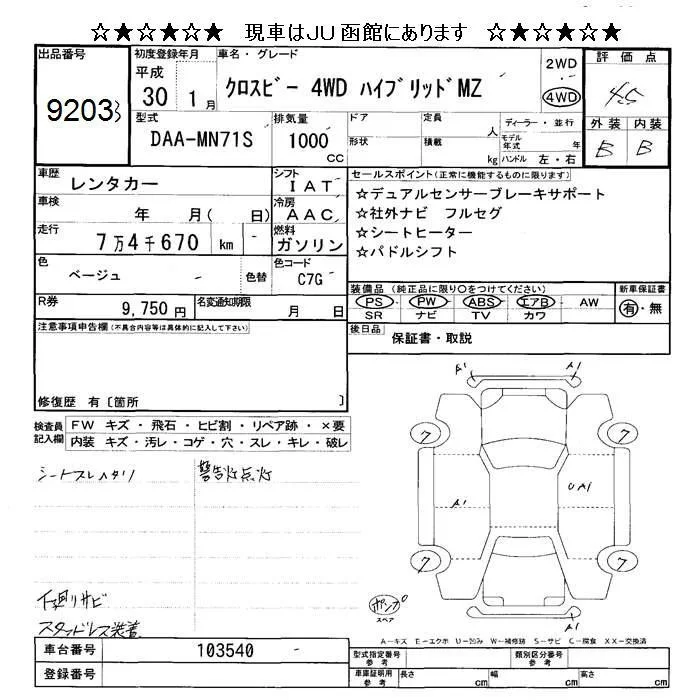 ☆★☆★☆★ 現車はJU函館にあります ☆★☆★☆★
出品番号
9203
初度登録年月
平成
30 1月
車名・グレード
クロスビー 4WD ハイブリッドMZ
2WD
4WD
評価点
4.5
外装 内装
B B
型式
DAA-MN71S
排気量
1000
CC
ドア
形状
定員
人
積載
kg
ディーラー・並行
モデル年式 年
ハンドル 左・右
車歴
レンタカー
シフト
IAT
車検
年 月( 日)
冷房
AAC
走行
7万4千670 km
燃料
ガソリン
色
ベージュ
色替
色コード
C7G
セールスポイント(正常に機能するものに限ります)
☆デュアルセンサーブレーキサポート
☆社外ナビ フルセグ
☆シートヒーター
☆パドルシフト
R券
9,750円
名変通知期限
月 日
装備品 (純正品に限り○をつけてください)
PS PW ABS エアB AW
SR ナビ TV カワ
新車保証書
有・無
後日品
保証書・取説
注意事項申告欄(不具合内容等は具体的に記入して下さい)
修復歴 有〔箇所 〕
検査員記入欄
FW キズ・飛石・ヒビ割・リペア跡・×要
内装 キズ・汚レ・コゲ・穴・スレ・キレ・破レ
シートスレヘタリ
警告灯点灯
下廻りサビ
スタッドレス装着
A1 A1
7 7
A1 UA1
7 7
ポンプ
スペア
A1
A-キズ E-エクボ U-凹み W-補修跡 S-サビ C-腐食 XX-交換済
車台番号
103540
登録番号
型式指定番号
参考
類別区分番号
参考
車庫証明用
参考
長さ cm
幅 cm
高さ cm